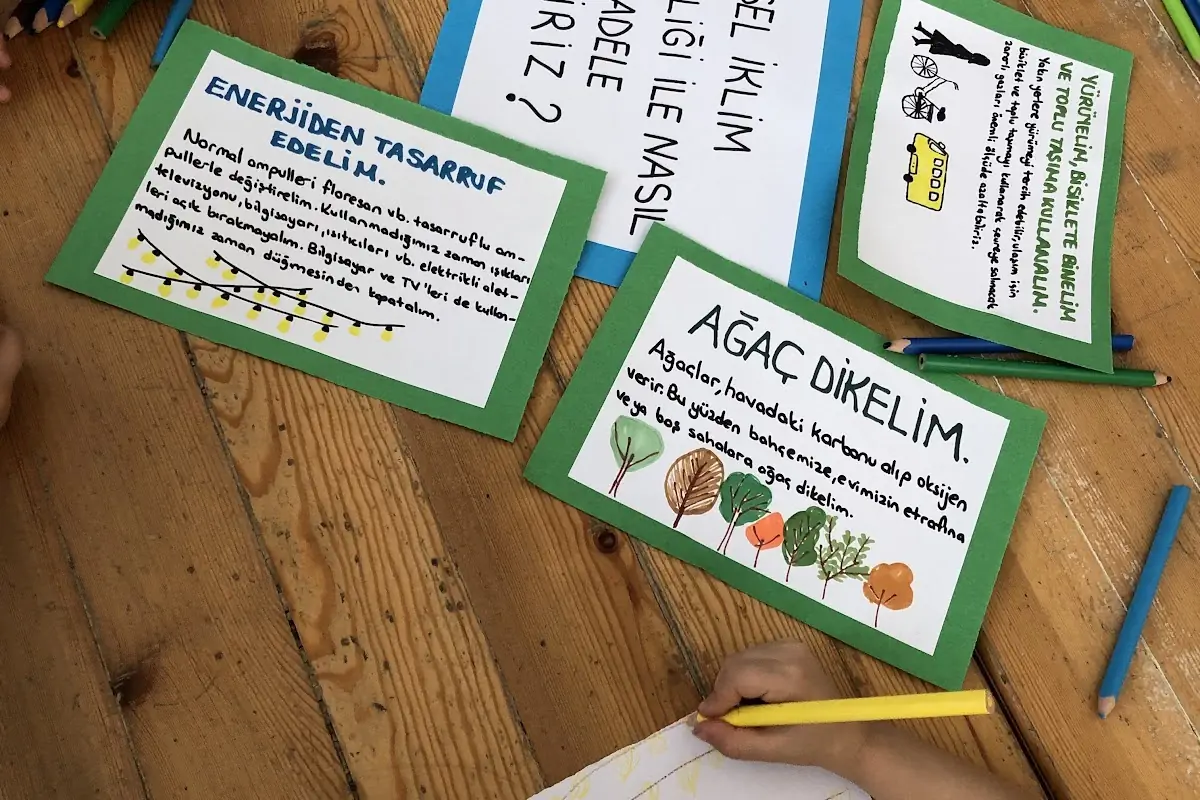 ENERJİDEN TASARRUF
EDELİM.
Normal ampulleri floresan vb. tasarruflu am-
pullerle değiştirelim. Kullanmadığımız zaman ışıkları
televizyonu, bilgisayarı, ısıtıcıları vb. elektrikli alet-
leri açık bırakmayalım. Bilgisayar ve TV'leri de kullan-
madığımız zaman düğmesinden kapatalım.
SEL İKLİM
LİĞİ İLE NASIL
ADELE
İRİZ ?
YÜRÜYELİM, BİSİKLETE BİNELİM
VE TOPLU TAŞIMA KULLANALIM.
Yakın yerlere yürümeyi tercih edebilir, ulaşım için
bisiklet ve toplu taşımayı kullanarak çevreye salınacak
zararlı gazları önemli ölçüde azaltabiliriz.
AĞAÇ DİKELİM.
Ağaçlar, havadaki karbonu alıp oksijen
verir. Bu yüzden bahçemize, evimizin etrafına
veya boş sahalara ağaç dikelim.